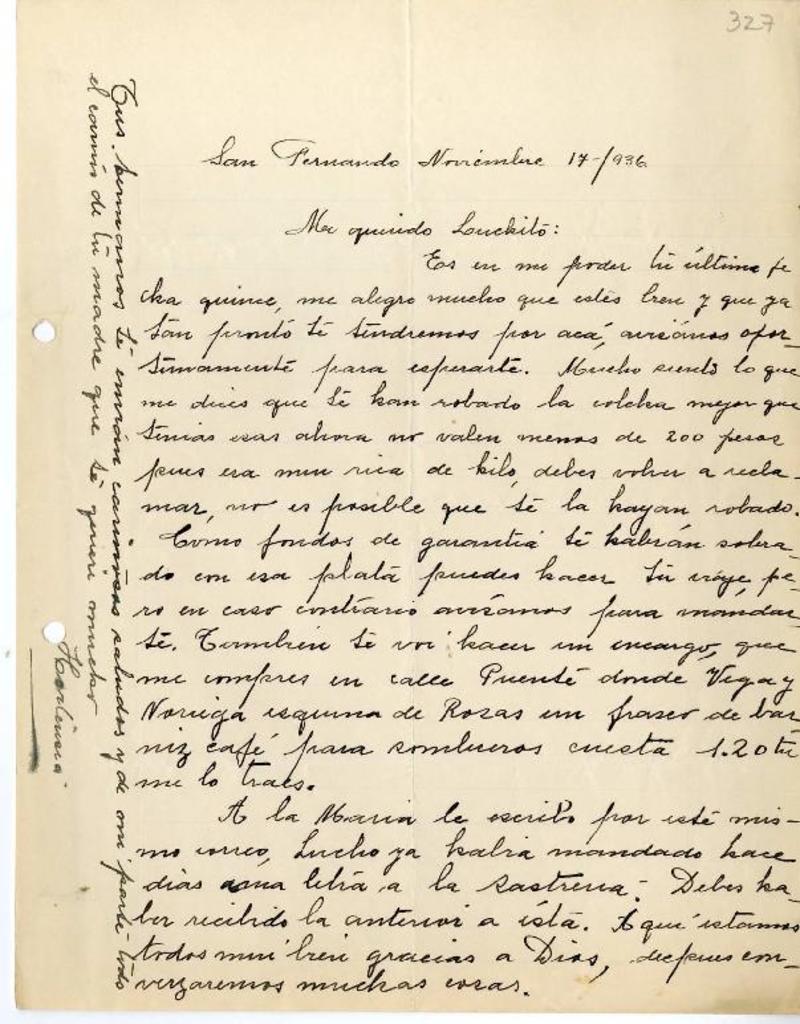 327
San Fernando Noviembre 17-/936
Mi querido Luchito:
Es en mi poder tu última fe
cha quince, me alegro mucho que estés bien y que ya
tan pronto te tendremos por acá, avisános opor-
tunamente para esperarte. Mucho siento lo que
me dices que te han robado la colcha mejor que
tenias esas ahora no valen menos de 200 pesos
pues era mui rica de hilo, debes volver a recla-
mar, no es posible que te la hayan robado.
Como fondos de garantia te habrán sobra-
do con esa plata puedes hacer tu viaje, pe-
ro en caso contrario avisanos para mandar
te. Tambien te voi hacer un encargo, que
me compres en calle Puente donde Vega y
Noriega esquina de Rosas un frasco de bar
niz café para sombreros cuesta 1.20 tu
me lo traes.
A la Maria le escribo por este mis-
mo correo, Lucho ya habia mandado hace
dias una letra a la sastreria. Debes ha-
ber recibido la anterior a ésta. Aqui estamos
todos mui bien gracias a Dios, despues con-
verzaremos muchas cosas.
Tus hermanos te envian cariñosos saludos y de mi parte todo
el cariño de tu madre que te quiere mucho
Hortensia